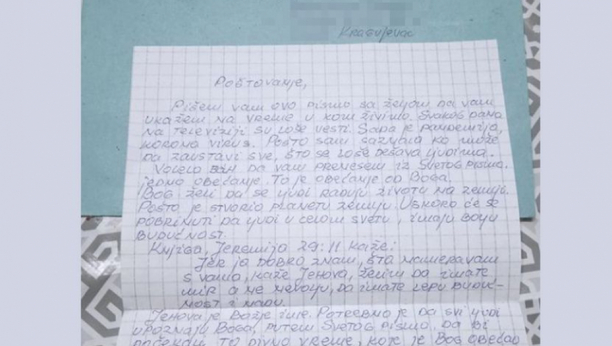 Kragujevac
Poštovanje,
Pišem vam ovo pismo sa željom da vam
ukažem na vreme u kom živimo. Svakog dana
na televiziji su loše vesti. Sada je pandemija,
korona virus. Pošto sam saznala ko može
da zaustavi sve, što se loše dešava ljudima.
Volela bih da vam prenesem iz Svetog pisma.
jedno obećanje. To je obećanje od Boga.
Bog želi da se ljudi raduju životu na zemlji.
Pošto je stvorio planetu zemlju. Uskoro će se
pobrinuti da ljudi u celom svetu, imaju bolju
budućnost.
Knjiga, Jeremija 29:11 kaže:
Jer ja dobro znam, šta nameravam
s vama, kaže Jehova, želim da imate
mir a ne nevolju, da imate lepu buduć-
nost i nadu.
Jehova je Božje ime. Potrebno je da svi ljudi
upoznaju Boga, putem Svetog pismo, da bi
dočekali to divno vreme, koje je Bog obećao